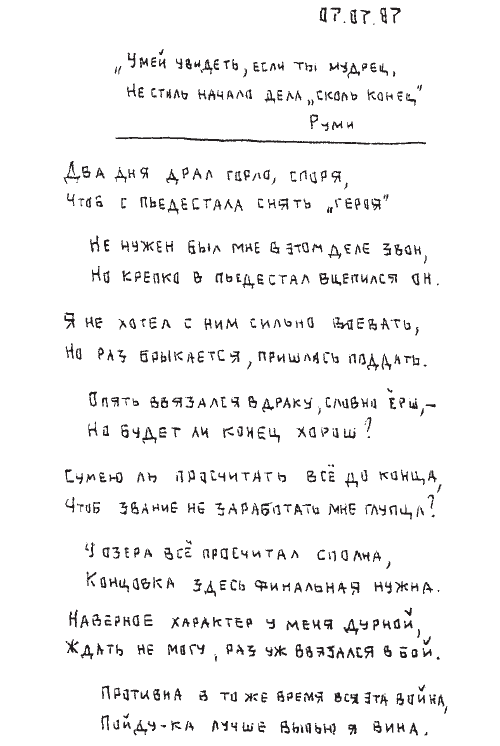 07.07.87
„Умей увидеть, если ты мудрец,
Не столь начало дела, „сколь конец“
Руми
Два дня драл горло, споря,
Чтоб с пьедестала снять „героя“
Не нужен был мне в этом деле звон,
Но крепко в пьедестал вцепился он.
Я не хотел с ним сильно воевать,
Но раз брыкается, пришлось поддать.
Опять ввязался в драку, словно ёрш,-
Но будет ли конец хорош?
Сумею ль просчитать всё до конца,
Чтоб звание не заработать мне глупца?
У озера всё просчитал сполна,
Концовка здесь финальная нужна.
Наверное характер у меня дурной,
Ждать не могу, раз уж ввязался в бой.
Противна в то же время вся эта война,
Пойду-ка лучше выпью я вина.